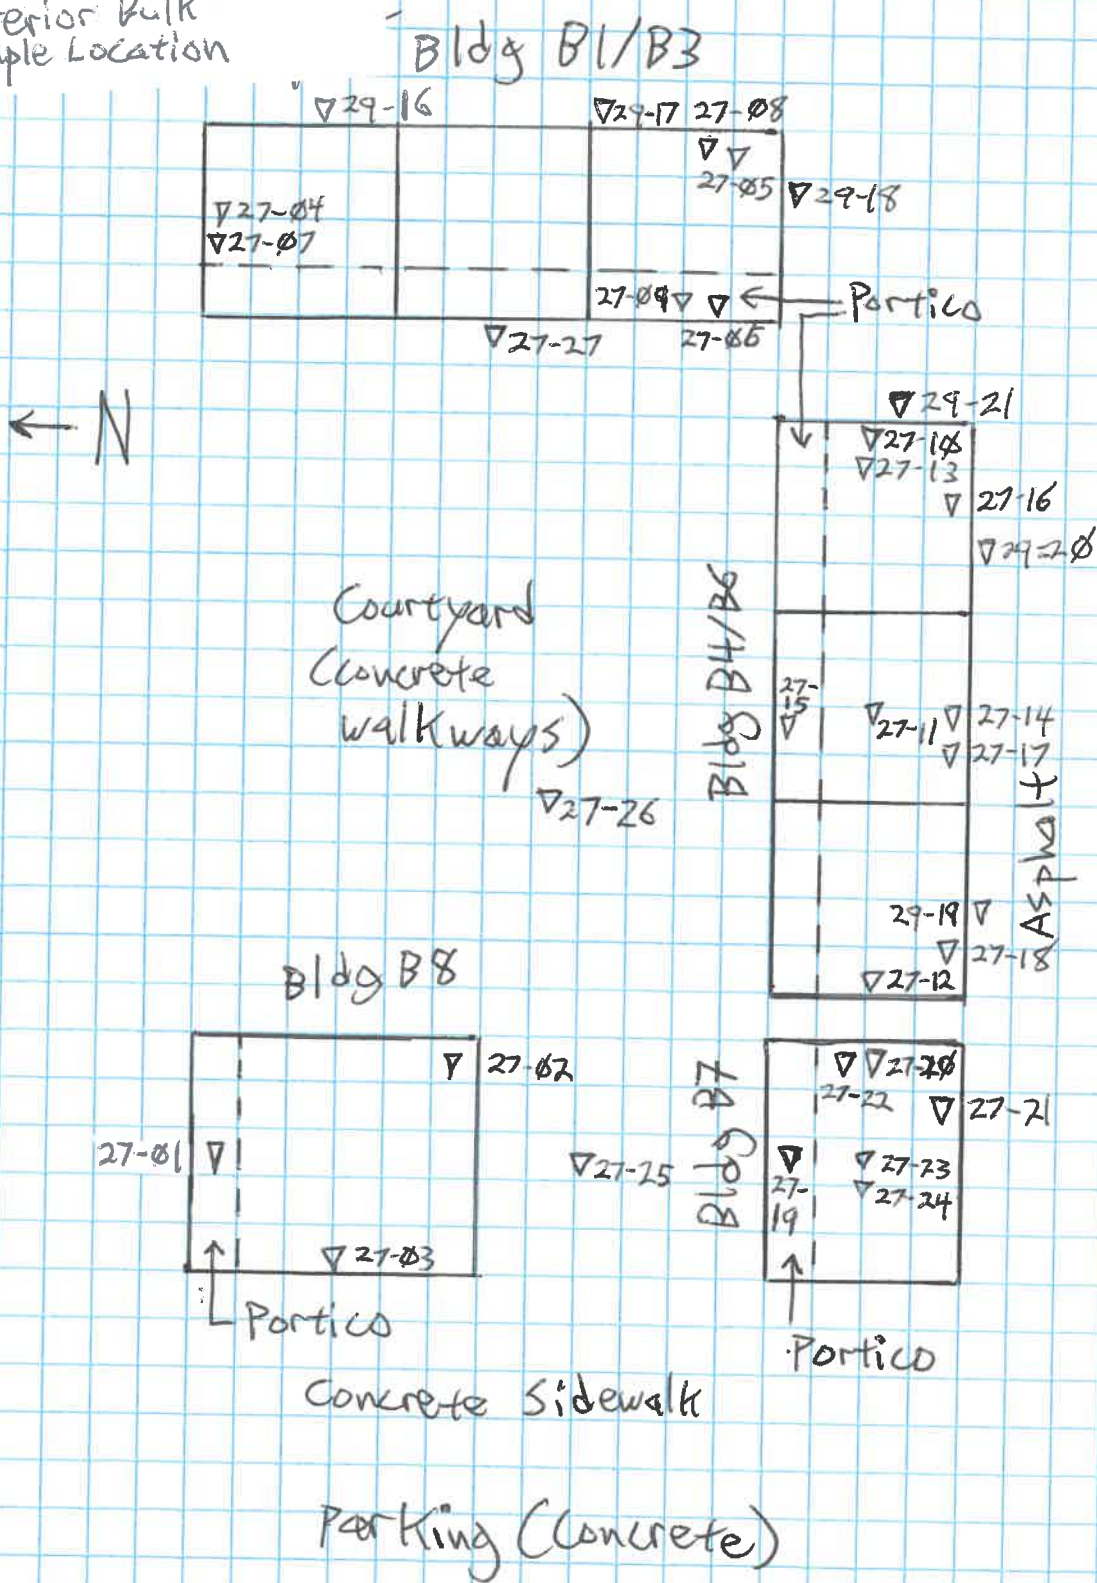 terior Bulk
mple Location
Bldg B1/B3
▽29-16
▽29-17 27-Ø8
27-Ø5
▽29-18
▽27-Ø4
▽27-Ø7
27-Ø9▽
Portico
▽27-27
27-Ø6
← N
▽29-21
▽27-1Ø
▽27-13
▽ 27-16
▽29-2Ø
Courtyard
(Concrete
walkways)
Bldg B4/B6
27-
15
▽27-11
▽ 27-14
▽ 27-17
▽27-26
Asphalt
29-19 ▽
▽ 27-18
▽27-12
Bldg B8
▽ 27-Ø2
27-Ø1 ▽
▽ 27-Ø3
Portico
▽27-25
Bldg B7
▽ ▽27-2Ø
27-22
▽ 27-21
▽27-23
▽27-24
27-
19
Portico
Concrete Sidewalk
Parking (Concrete)